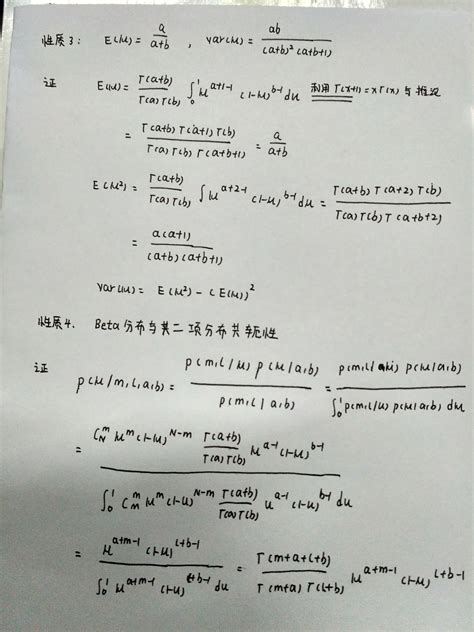 性质3: E(μ) = a/(a+b), var(μ) = ab/((a+b)²(a+b+1))
证 E(μ) = Γ(a+b)/(Γ(a)Γ(b)) ∫₀¹ μ^(a+1-1) (1-μ)^(b-1) du 利用 Γ(x+1) = xΓ(x) 与
= Γ(a+b)Γ(a+1)Γ(b)/(Γ(a)Γ(b)Γ(a+b+1)) = a/(a+b)
E(μ²) = Γ(a+b)/(Γ(a)Γ(b)) ∫ μ^(a+2-1) (1-μ)^(b-1) du = Γ(a+b)Γ(a+2)Γ(b)/(Γ(a)Γ(b)Γ(a+b+2))
= a(a+1)/((a+b)(a+b+1))
var(μ) = E(μ²) - (E(μ))²
性质4. Beta分布与其二项分布共轭性
证 p(μ/m,l,a,b) = p(m,l/μ) p(μ/a,b)/p(m,l/a,b) = p(m,l/μ) p(μ/a,b)/∫₀¹ p(m,l/μ) p(μ/a,b) dμ
= C_N^m μ^m (1-μ)^(N-m) Γ(a+b)/(Γ(a)Γ(b)) μ^(a-1) (1-μ)^(b-1) / ∫₀¹ C_m^m μ^m (1-μ)^(N-m) Γ(a+b)/(Γ(a)Γ(b)) u^(a-1) (1-μ)^(b-1) du
= μ^(a+m-1) (1-μ)^(l+b-1) / ∫₀¹ μ^(a+m-1) (1-μ)^(l+b-1) du = Γ(m+a+l+b)/(Γ(m+a)Γ(l+b)) μ^(a+m-1) (1-μ)^(l+b-1)